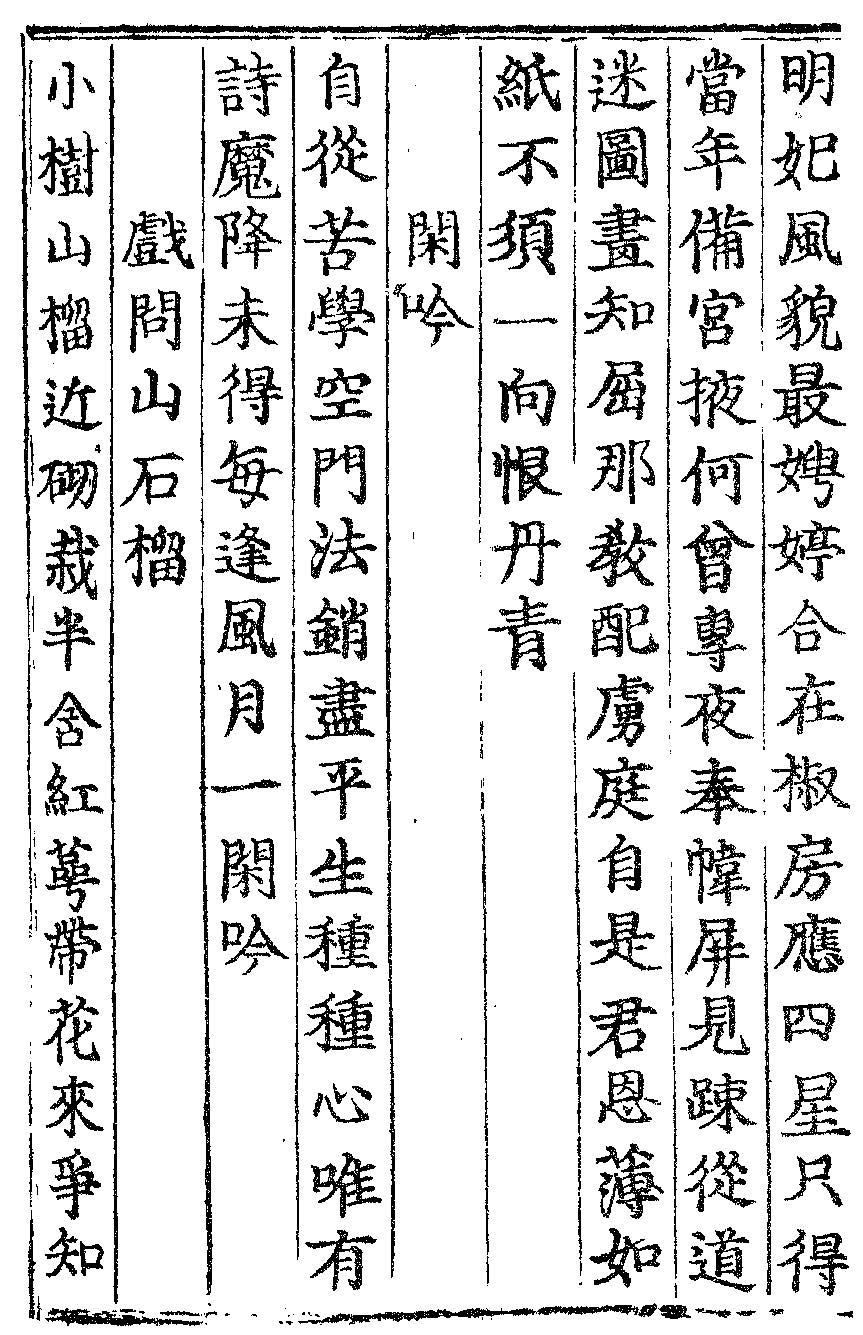 明妃風貌最娉婷合在椒房應四星只得
當年備宮掖何曾專夜奉幃屏見踈從道
迷圖畫知屈那教配虜庭自是君恩薄如
紙不須一向恨丹青
閑吟
自從苦學空門法銷盡平生種種心唯有
詩魔降未得每逢風月一閑吟
戲問山石榴
小樹山榴近砌栽半含紅萼帶花來爭知